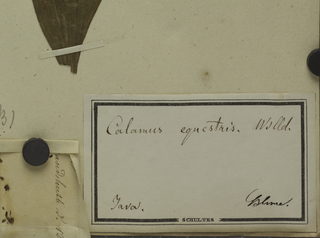 Calamus equestris. Willd.
Java. Blume.
SCHULTES
3)